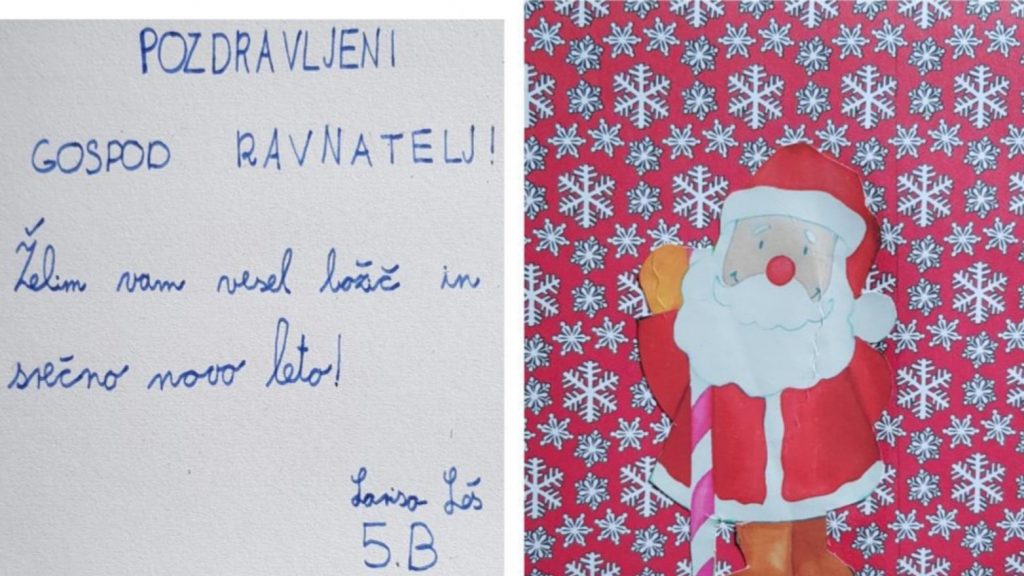 POZDRAVLJENI
GOSPOD RAVNATELJ!
Želim vam vesel božič in
srečno novo leto!
Larisa Lés
5.B